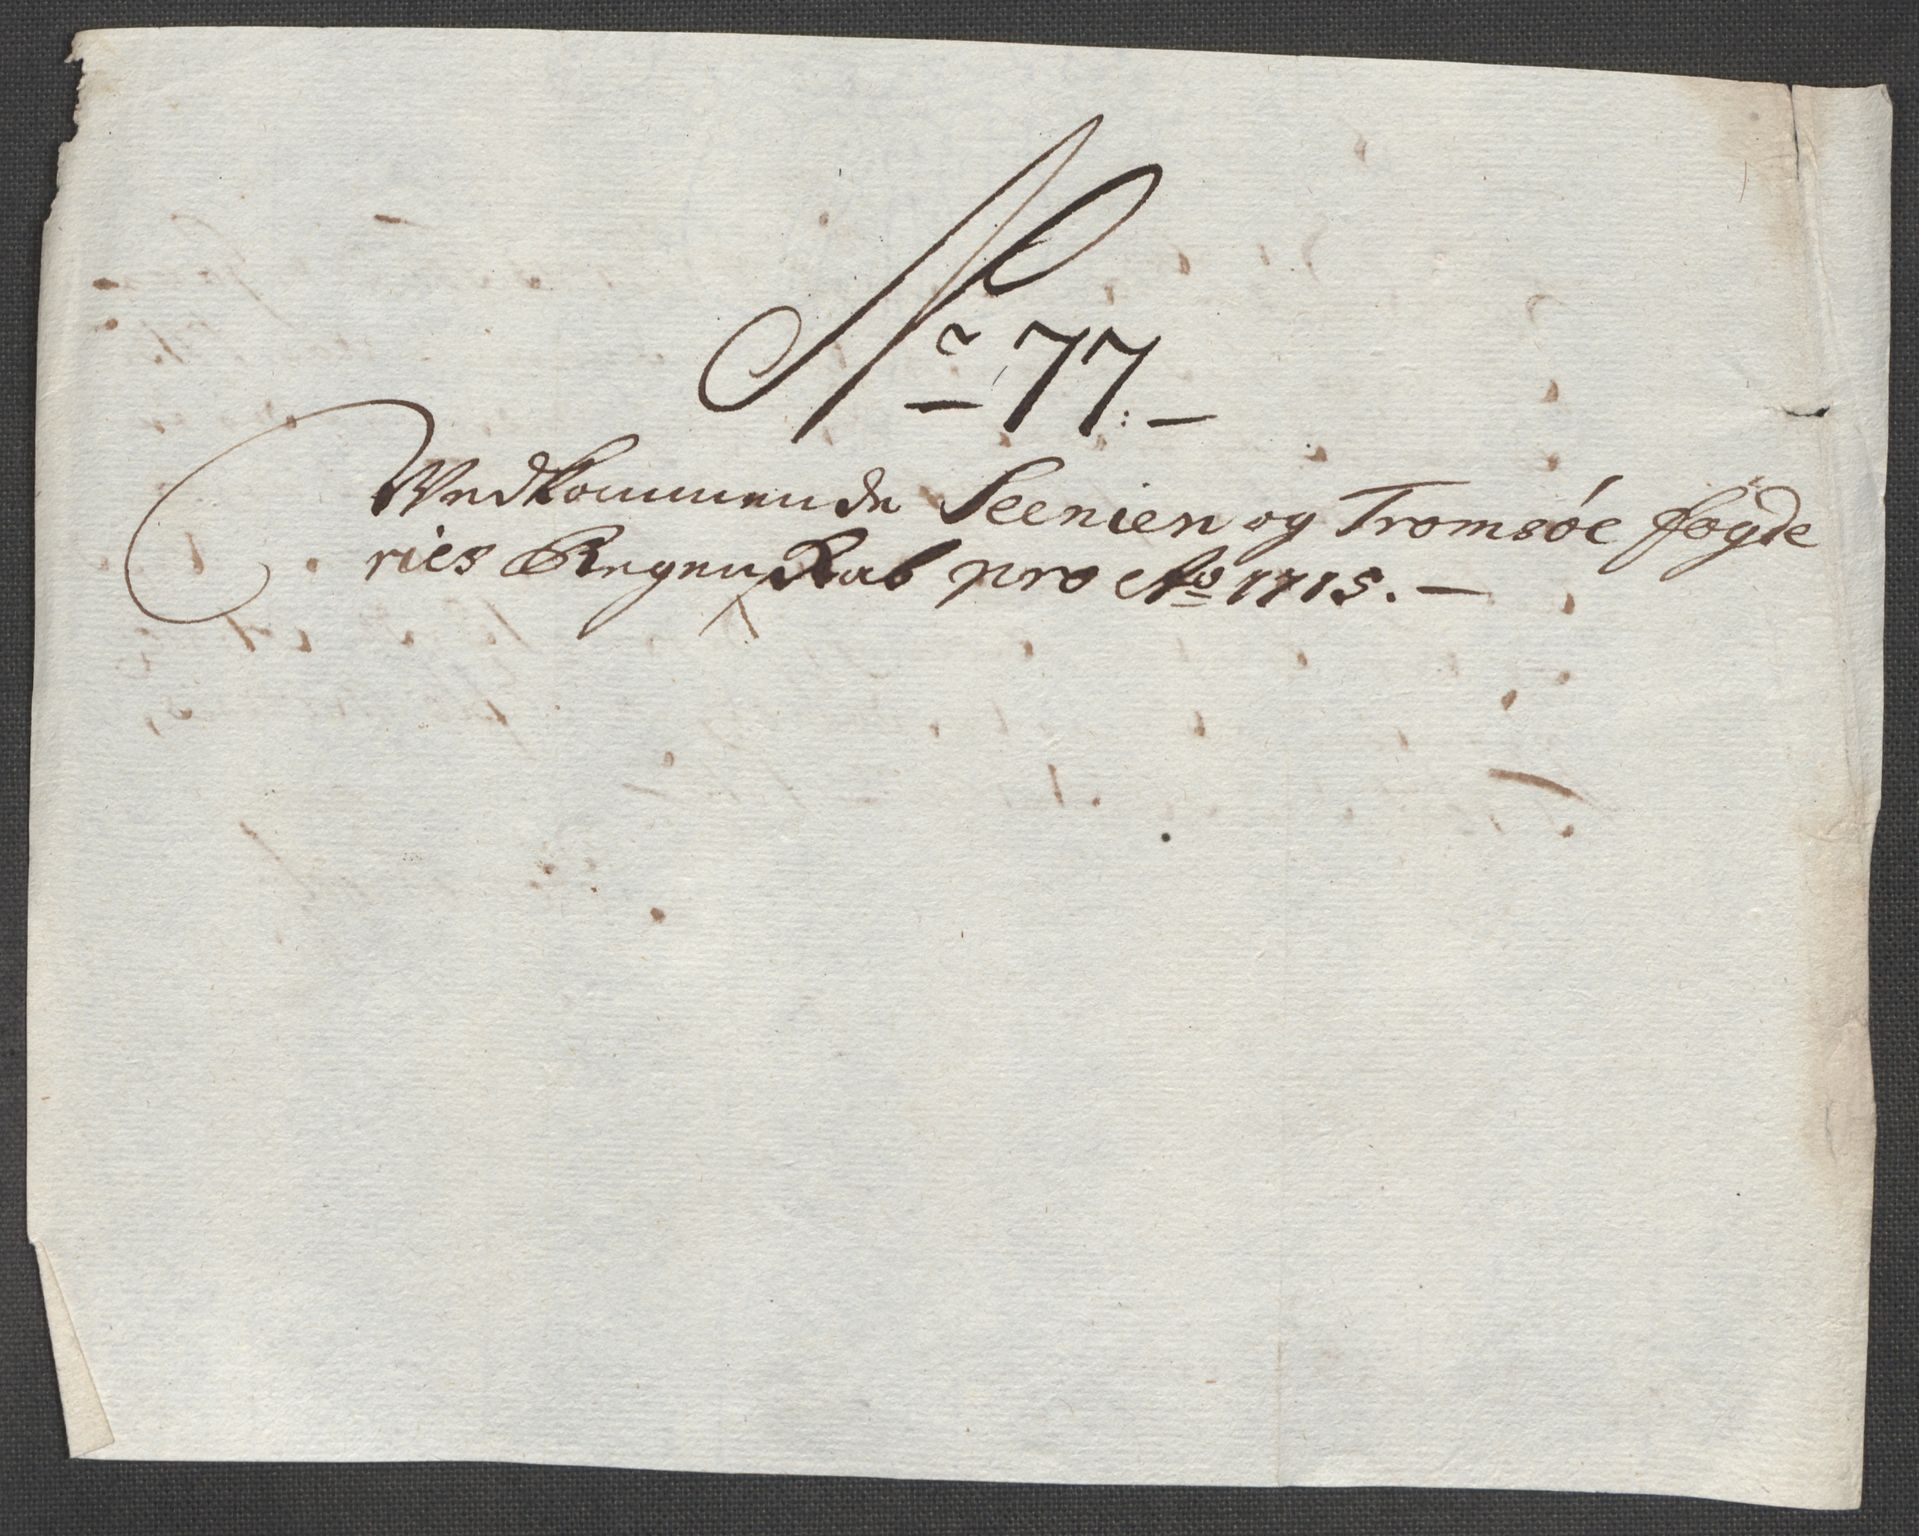 Nr 77.
Vedkommende Seenien og Tromsøe fogde
ries Regenskab pro Ao 1715.